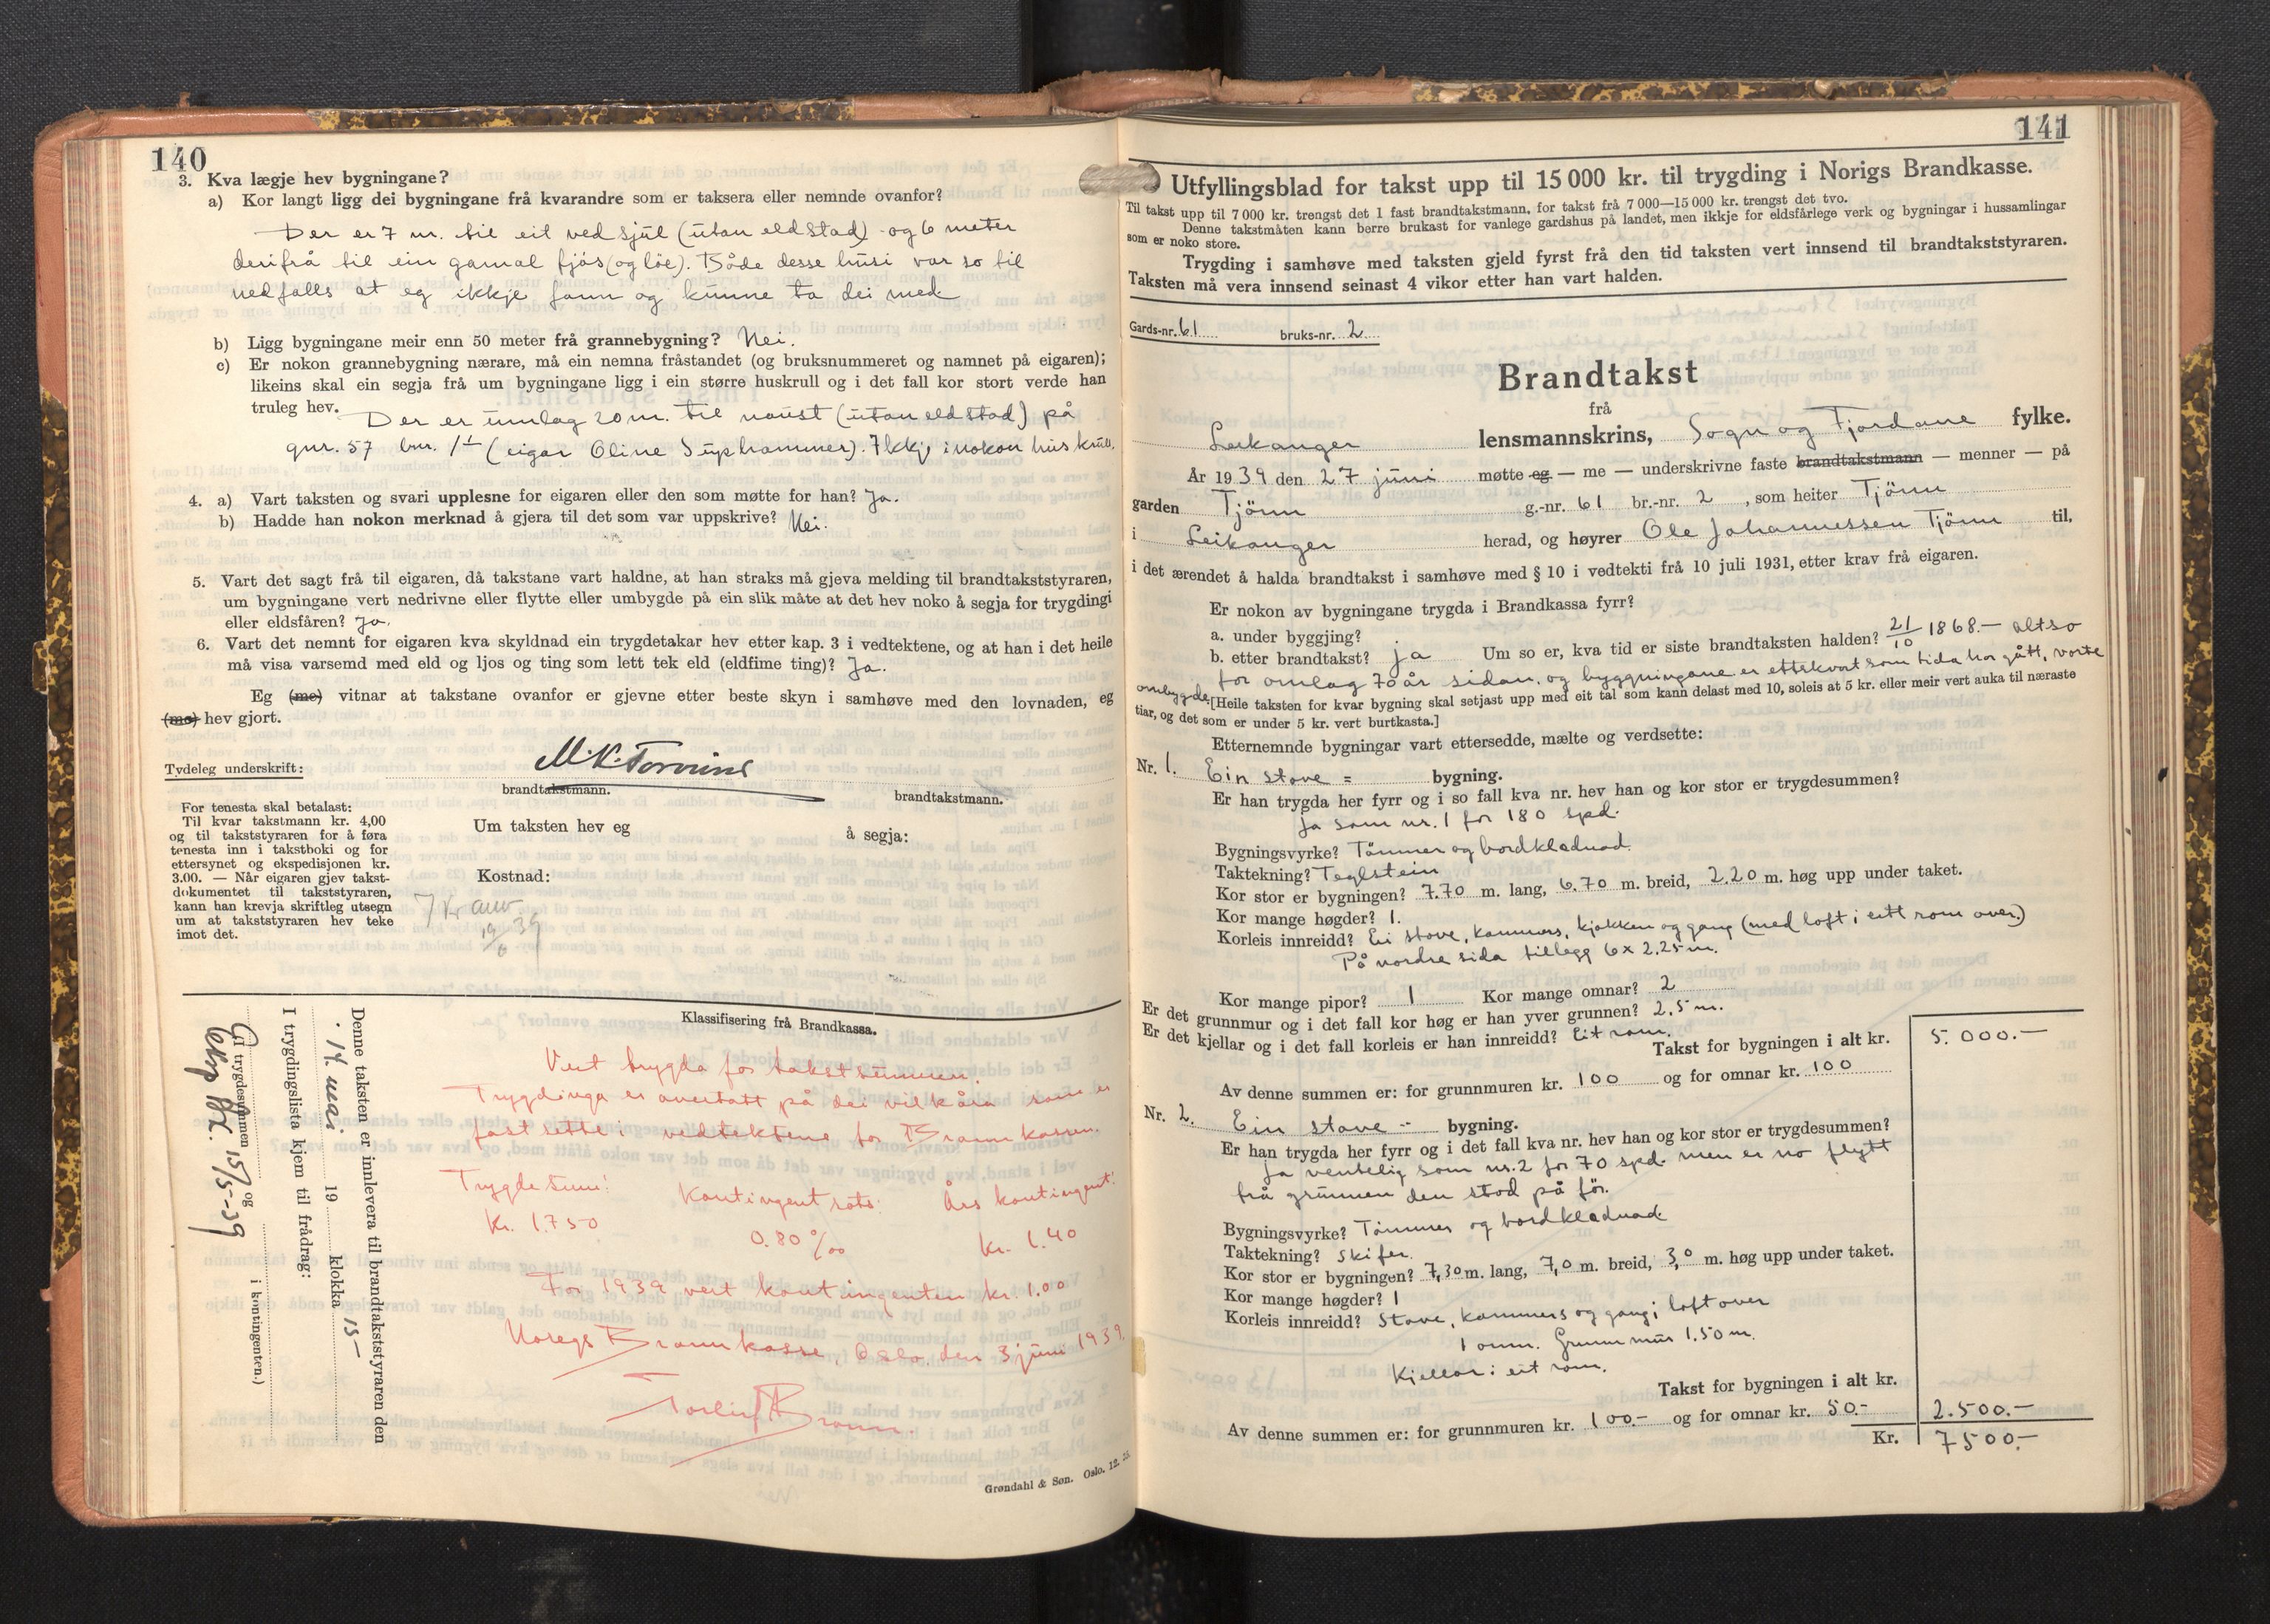 140
3. Kva lægje hev bygningane?
a) Kor langt ligg dei bygningane frå kvarandre som er taksera eller nemnde ovanfor?
Der er 7 m. til eit vedsjul (utan eldstad) og 6 meter
derifrå til ein gamal fjøs (og löe). Både desse husi var so til
nedfalls at eg ikkje fann og kunne ta dei med
b) Ligg bygningane meir enn 50 meter frå grannebygning? Nei.
c) Er nokon grannebygning nærare, må ein nemna fråstandet (og bruksnummeret og namnet på eigaren);
likeins skal ein segja frå um bygningane ligg i ein større huskrull og i det fall kor stort verde han
truleg hev.
Der er umlag 20 m. til naust (utan eldstad) på
gnr. 57 bnr. 1 (eigar Oline Suphammer). Ikkje i nokon huskrull.
4. a) Vart taksten og svari upplesne for eigaren eller den som møtte for han? Ja.
b) Hadde han nokon merknad å gjera til det som var uppskrive? Nei.
5. Vart det sagt frå til eigaren, då takstane vart haldne, at han straks må gjeva melding til brandtakststyraren,
um bygningane vert nedrivne eller flytte eller umbygde på ein slik måte at det hev noko å segja for trygdingi
eller eldsfåren? Ja.
6. Vart det nemnt for eigaren kva skyldnad ein trygdetakar hev etter kap. 3 i vedtektene, og at han i det heile
må visa varsemd med eld og ljos og ting som lett tek eld (eldfime ting)? Ja.
Eg (me) vitnar at takstane ovanfor er gjevne etter beste skyn i samhøve med den lovnaden, eg
(me) hev gjort.
Tydeleg underskrift:
brandtakstmann. brandtakstmann.
For tenesta skal betalast:
Til kvar takstmann kr. 4,00
og til takststyraren for å føra
tenesta inn i takstboki og for
ettersynet og ekspedisjonen kr.
3.00. — Når eigaren gjev takst-
dokumentet til takststyraren,
kann han krevja skriftleg utsegn
um at takststyraren hev teke
imot det.
Um taksten hev eg å segja:
Kostnad:
7 kr
Klassifisering frå Brandkassa.
Vert trygda for takstsummen.
Trygdinga er overtatt på dei vilkåra som er
fastsette i vedtektene for Brannkassen.
Trygdesum: Kontingentsats: Års kontingent:
Kr. 1750 0.80 ‰ Kr. 1.40
For 1939 vert kontingenten kr. 1.00
Noregs Brannkasse, Oslo den 3 juni 1939.
Denne taksten er innlevera til brandtakststyraren den
14. mai 19 klokka 15—
I trygdingslista kjem til frådrag:
(I trygdesummen og i kontingenten.)
15/5-39
Grøndahl & Søn. Oslo. 12.
141
Utfyllingsblad for takst upp til 15 000 kr. til trygding i Norigs Brandkasse.
Til takst upp til 7 000 kr. trengst det 1 fast brandtakstmann, for takst frå 7 000—15 000 kr. trengst det tvo.
Denne takstmåten kann berre brukast for vanlege gardshus på landet, men ikkje for eldsfårlege verk og bygningar i hussamlingar
som er noko store.
Trygding i samhøve med taksten gjeld fyrst frå den tid taksten vert innsend til brandtakststyraren.
Taksten må vera innsend seinast 4 vikor etter han vart halden.
Gards-nr. 61 bruks-nr. 2
Brandtakst
frå
Leikanger lensmannskrins, Sogn og Fjordane fylke.
År 1939 den 27 juni møtte eg — me — underskrivne faste brandtakstmann — menner — på
garden Tjönn g.-nr. 61 br.-nr. 2, som heiter Tjönn
i Leikanger herad, og høyrer Ole Johannessen Tjönn til,
i det ærendet å halda brandtakst i samhøve med § 10 i vedtekti frå 10 juli 1931, etter krav frå eigaren.
Er nokon av bygningane trygda i Brandkassa fyrr?
a. under byggjing?
b. etter brandtakst? ja Um so er, kva tid er siste brandtaksten halden? 21/10 1868.— altso
for omlag 70 år sidan, og byggningane er ettekvart som tida har gått, vorte
ombygde. [Heile taksten for kvar bygning skal setjast upp med eit tal som kann delast med 10, soleis at 5 kr. eller meir vert auka til næraste
tiar, og det som er under 5 kr. vert burtkasta.]
Etternemnde bygningar vart ettersedde, mælte og verdsette:
Nr. 1. Ein stove = bygning.
Er han trygda her fyrr og i so fall kva nr. hev han og kor stor er trygdesummen?
Ja som nr. 1 for 180 spd.
Bygningsvyrke? Tömmer og bordklednad.
Taktekning? Teglstein
Kor stor er bygningen? 7.70 m. lang, 6.70 m. breid, 2.20 m. høg upp under taket.
Kor mange høgder? 1.
Korleis innreidd? Ei stove, kammers, kjökken og gang (med loft i eitt rom over.)
På nordre sida tillegg 6 x 2.25 m.
Kor mange pipor? 1 Kor mange omnar? 2
Er det grunnmur og i det fall kor høg er han yver grunnen? 2,5 m.
Er det kjellar og i det fall korleis er han innreidd? Eit rom.
Takst for bygningen i alt kr. 5.000.—
Av denne summen er: for grunnmuren kr. 100 og for omnar kr. 100
Nr. 2. Ein stove - bygning.
Er han trygda her fyrr og i det fall kva nr. hev han og kor stor er trygdesummen?
Ja venteleg som nr. 2 for 70 spd. men er no flytt
frå grunnen den stod på för.
Bygningsvyrke? Tömmer og bordklednad
Taktekning? Skifer.
Kor stor er bygningen? 7,30 m. lang, 7,0 m. breid, 3,0 m. høg upp under taket.
Kor mange høgder? 1
Korleis innreidd? Stove, kammers og gang; loft over
1 omn. Grunnmur 1.50 m.
Kjellar i eit rom.
Takst for bygningen i alt kr.
Av denne summen er: for grunnmuren kr. 100.- og for omnar kr. 50.- 2.500.—
Kr. 7500.—